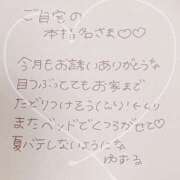 ご自宅の
本指名さま♡♡
今月もお誘いありがとうな
目つぶっててもお家まで
たどりつけるうくらい
またベッドでくつろがせて♡
夏バテしないようにな
ゆずる